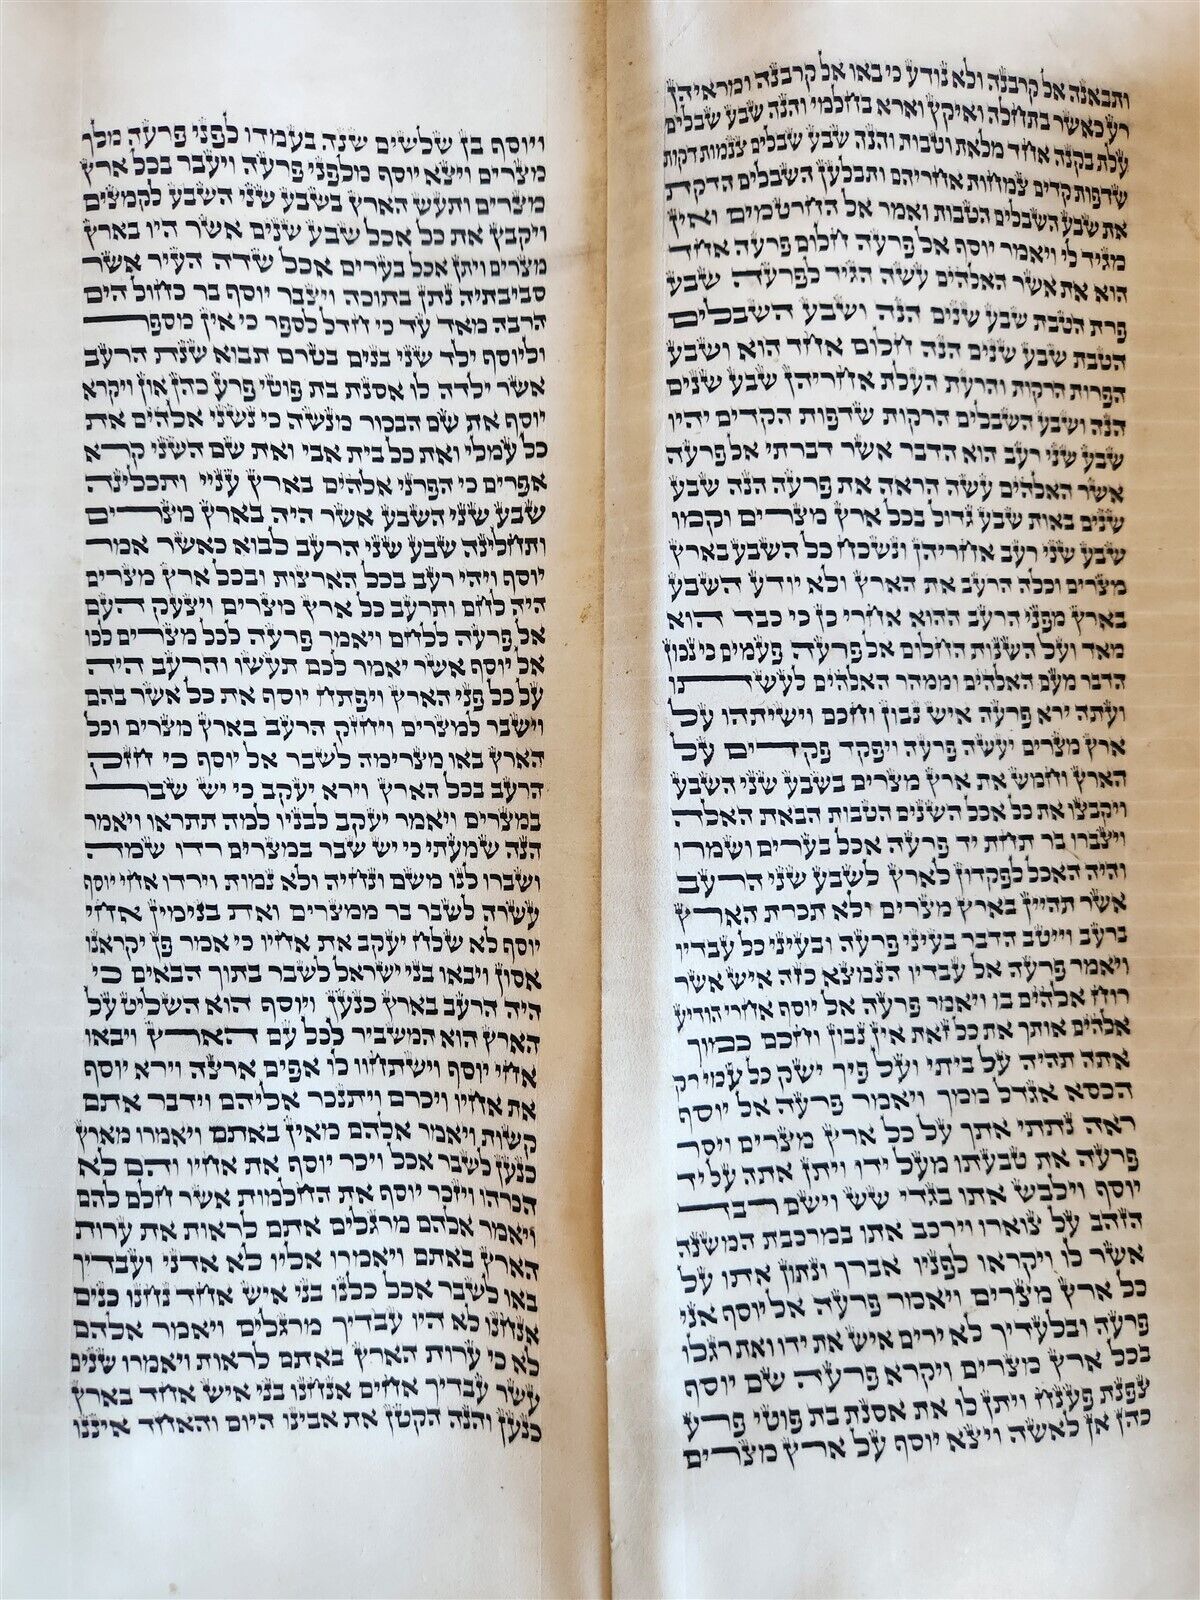 ותבאנה אל קרבנה ולא נודע כי באו אל קרבנה ומראיהן
רע כאשר בתחלה ואיקץ וארא בחלמי והנה שבע שבלים
עלת בקנה אחד מלאת וטבות והנה שבע שבלים צנמות דקות
שדפות קדים צמחות אחריהם ותבלען השבלים הדקת
את שבע השבלים הטבות ואמר אל החרטמים ואין
מגיד לי ויאמר יוסף אל פרעה חלום פרעה אחד
הוא את אשר האלהים עשה הגיד לפרעה שבע
פרת הטבת שבע שנים הנה ושבע השבלים
הטבת שבע שנים הנה חלום אחד הוא ושבע
הפרות הרקות והרעת העלת אחריהן שבע שנים
הנה ושבע השבלים הרקות שדפות הקדים יהיו
שבע שני רעב הוא הדבר אשר דברתי אל פרעה
אשר האלהים עשה הראה את פרעה הנה שבע
שנים באות שבע גדול בכל ארץ מצרים וקמו
שבע שני רעב אחריהן ונשכח כל השבע בארץ
מצרים וכלה הרעב את הארץ ולא יודע השבע
בארץ מפני הרעב ההוא אחרי כן כי כבד הוא
מאד ועל השנות החלום אל פרעה פעמים כי נכון
הדבר מעם האלהים וממהר האלהים לעשתו
ועתה ירא פרעה איש נבון וחכם וישיתהו על
ארץ מצרים יעשה פרעה ויפקד פקדים על
הארץ וחמש את ארץ מצרים בשבע שני השבע
ויקבצו את כל אכל השנים הטבות הבאת האלה
ויצברו בר תחת יד פרעה אכל בערים ושמרו
והיה האכל לפקדון לארץ לשבע שני הרעב
אשר תהיין בארץ מצרים ולא תכרת הארץ
ברעב וייטב הדבר בעיני פרעה ובעיני כל עבדיו
ויאמר פרעה אל עבדיו הנמצא כזה איש אשר
רוח אלהים בו ויאמר פרעה אל יוסף אחרי הודיע
אלהים אותך את כל זאת אין נבון וחכם כמוך
אתה תהיה על ביתי ועל פיך ישק כל עמי רק
הכסא אגדל ממך ויאמר פרעה אל יוסף
ראה נתתי אתך על כל ארץ מצרים ויסר
פרעה את טבעתו מעל ידו ויתן אתה על יד
יוסף וילבש אתו בגדי שש וישם רבד
הזהב על צוארו וירכב אתו במרכבת המשנה
אשר לו ויקראו לפניו אברך ונתון אתו על
כל ארץ מצרים ויאמר פרעה אל יוסף אני
פרעה ובלעדיך לא ירים איש את ידו ואת רגלו
בכל ארץ מצרים ויקרא פרעה שם יוסף
צפנת פענח ויתן לו את אסנת בת פוטי פרע
כהן אן לאשה ויצא יוסף על ארץ מצרים
ויוסף בן שלשים שנה בעמדו לפני פרעה מלך
מצרים ויצא יוסף מלפני פרעה ויעבר בכל ארץ
מצרים ותעש הארץ בשבע שני השבע לקמצים
ויקבץ את כל אכל שבע שנים אשר היו בארץ
מצרים ויתן אכל בערים אכל שדה העיר אשר
סביבתיה נתן בתוכה ויצבר יוסף בר כחול הים
הרבה מאד עד כי חדל לספר כי אין מספר
וליוסף ילד שני בנים בטרם תבוא שנת הרעב
אשר ילדה לו אסנת בת פוטי פרע כהן און ויקרא
יוסף את שם הבכור מנשה כי נשני אלהים את
כל עמלי ואת כל בית אבי ואת שם השני קרא
אפרים כי הפרני אלהים בארץ עניי ותכלינה
שבע שני השבע אשר היה בארץ מצרים
ותחלינה שבע שני הרעב לבוא כאשר אמר
יוסף ויהי רעב בכל הארצות ובכל ארץ מצרים
היה לחם ותרעב כל ארץ מצרים ויצעק העם
אל פרעה ללחם ויאמר פרעה לכל מצרים לכו
אל יוסף אשר יאמר לכם תעשו והרעב היה
על כל פני הארץ ויפתח יוסף את כל אשר בהם
וישבר למצרים ויחזק הרעב בארץ מצרים וכל
הארץ באו מצרימה לשבר אל יוסף כי חזק
הרעב בכל הארץ וירא יעקב כי יש שבר
במצרים ויאמר יעקב לבניו למה תתראו ויאמר
הנה שמעתי כי יש שבר במצרים רדו שמה
ושברו לנו משם ונחיה ולא נמות וירדו אחי יוסף
עשרה לשבר בר ממצרים ואת בנימין אחי
יוסף לא שלח יעקב את אחיו כי אמר פן יקראנו
אסון ויבאו בני ישראל לשבר בתוך הבאים כי
היה הרעב בארץ כנען ויוסף הוא השליט על
הארץ הוא המשביר לכל עם הארץ ויבאו
אחי יוסף וישתחוו לו אפים ארצה וירא יוסף
את אחיו ויכרם ויתנכר אליהם וידבר אתם
קשות ויאמר אלהם מאין באתם ויאמרו מארץ
כנען לשבר אכל ויכר יוסף את אחיו והם לא
הכרהו ויזכר יוסף את החלמות אשר חלם להם
ויאמר אלהם מרגלים אתם לראות את ערות
הארץ באתם ויאמרו אליו לא אדני ועבדיך
באו לשבר אכל כלנו בני איש אחד נחנו כנים
אנחנו לא היו עבדיך מרגלים ויאמר אלהם
לא כי ערות הארץ באתם לראות ויאמרו שנים
עשר עבדיך אחים אנחנו בני איש אחד בארץ
כנען והנה הקטן את אבינו היום והאחד איננו